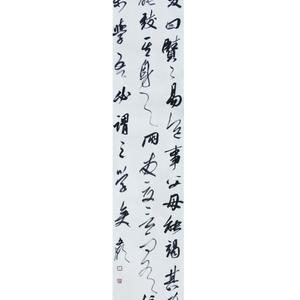 夏曰賢〻易色事父母能竭其
能致其身與朋友交言而有信
未學吾必謂之學矣